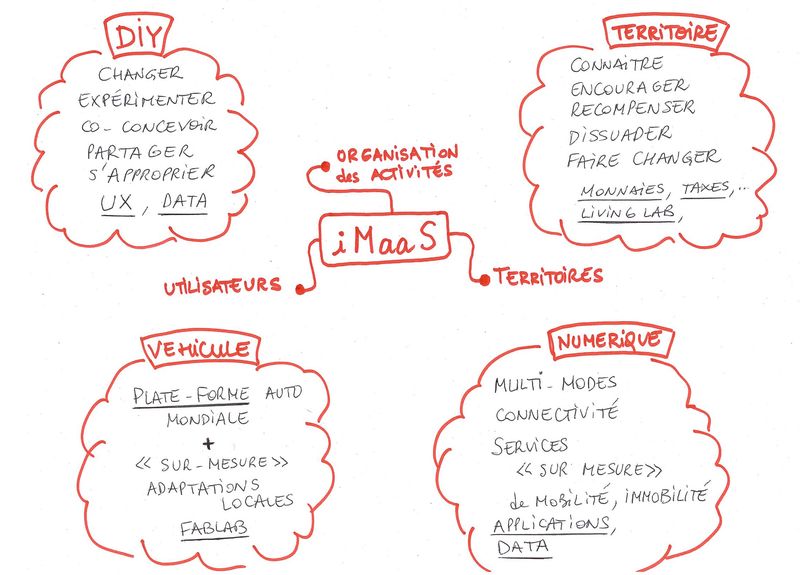 DIY
CHANGER
EXPÉRIMENTER
CO-CONCEVOIR
PARTAGER
S'APPROPRIER
UX, DATA
TERRITOIRE
CONNAITRE
ENCOURAGER
RECOMPENSER
DISSUADER
FAIRE CHANGER
MONNAIES, TAXES,..
LIVING LAB,
ORGANISATION
des ACTIVITÉS
iMaaS
UTILISATEURS
TERRITOIRES
VEHICULE
PLATE-FORME AUTO
MONDIALE
+
<< SUR-MESURE >>
ADAPTATIONS
LOCALES
FABLAB
NUMERIQUE
MULTI-MODES
CONNECTIVITÉ
SERVICES
<< SUR MESURE >>
de MOBILITÉ, IMMOBILITÉ
APPLICATIONS,
DATA